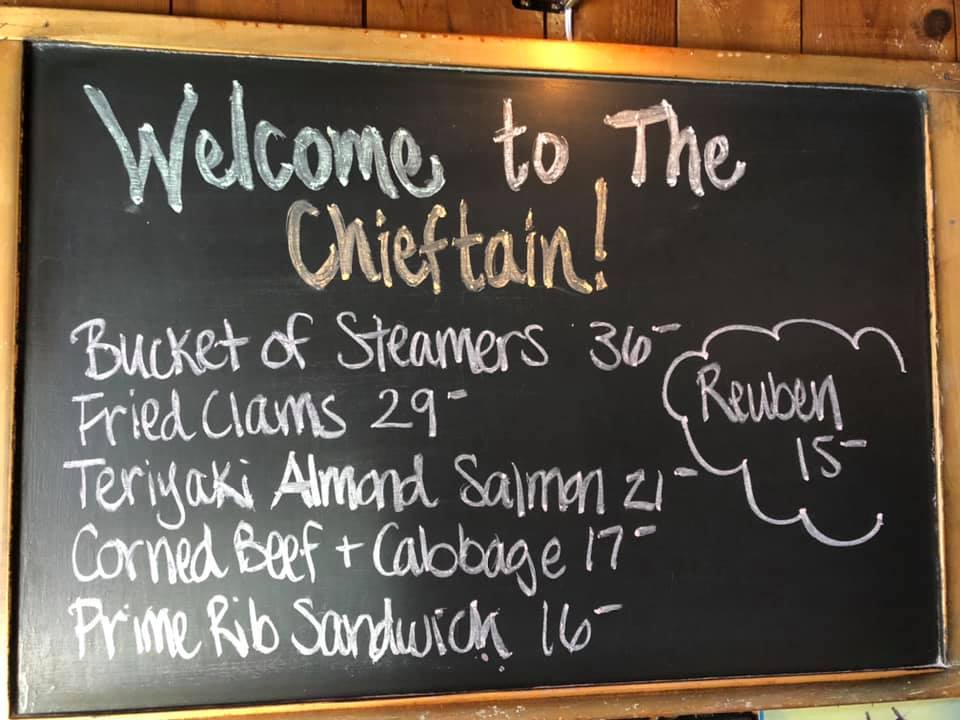 Welcome to The
Chieftain!
Bucket of Steamers 36-
Fried Clams 29-
Teriyaki Almond Salmon 21-
Corned Beef + Cabbage 17-
Prime Rib Sandwich 16-
Reuben
15-